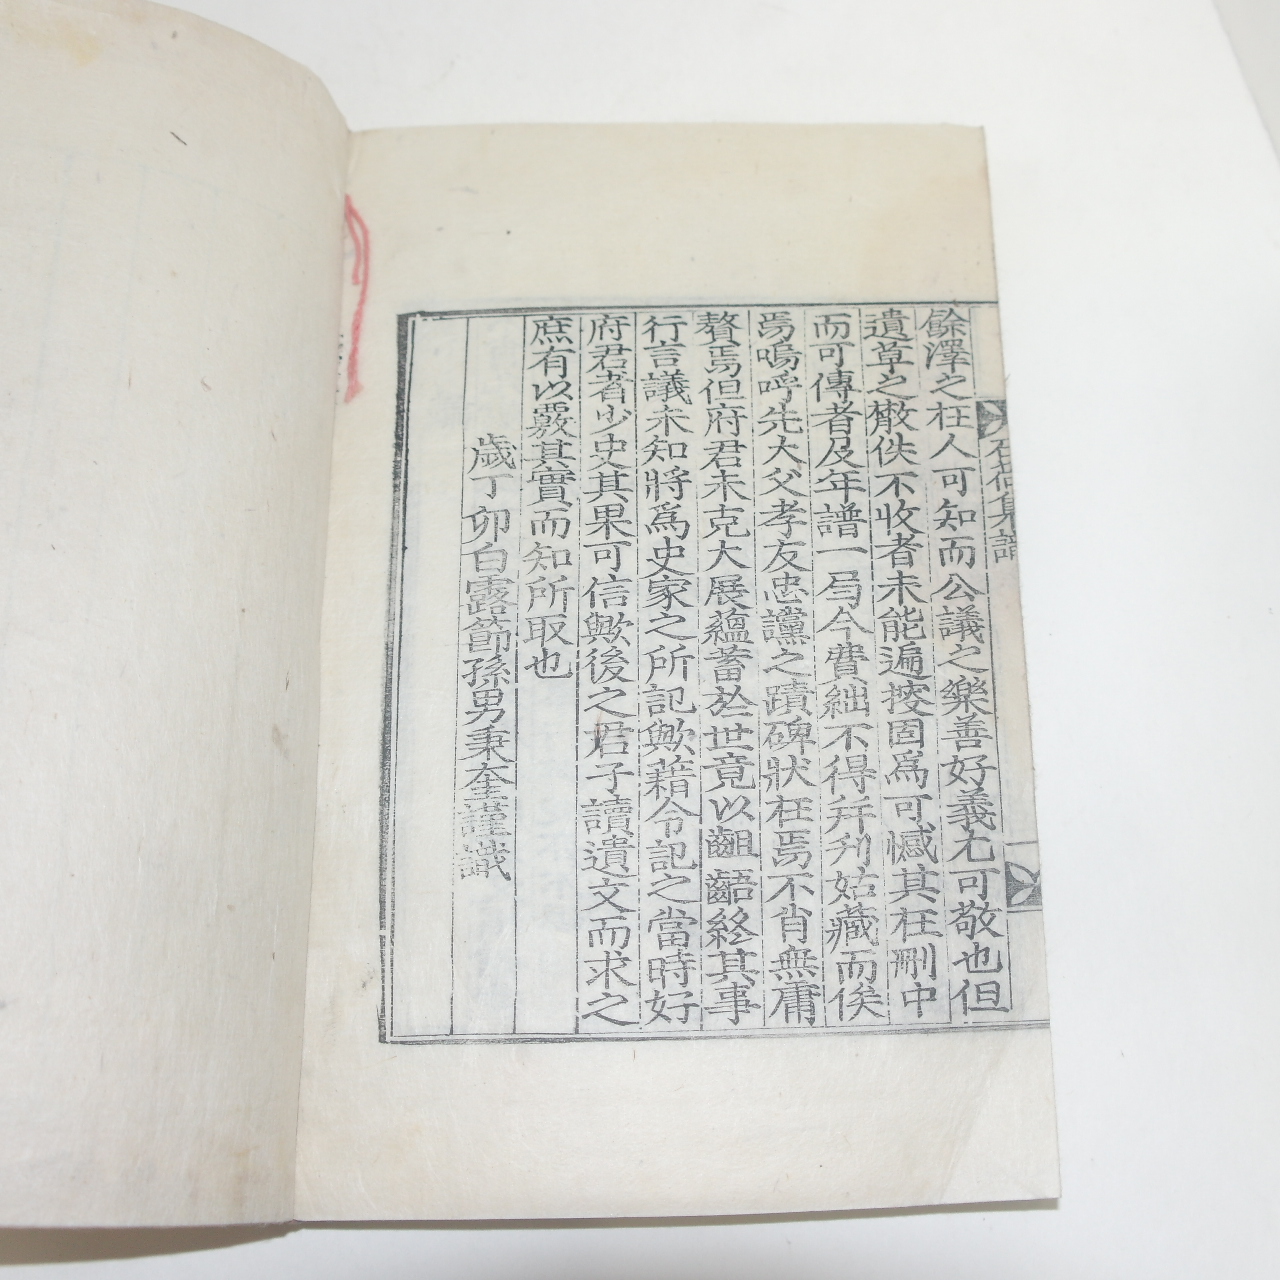 餘澤之在人可知而公議之樂善好義尤可敬也但
遺草之散佚不收者未能遍搜固爲可憾其在刪中
而可傳者及年譜一局今費絀不得幷刋姑藏而俟
焉嗚呼先大父孝友忠讜之蹟碑狀在焉不肖無庸
贅焉但府君未克大展蘊蓄於世竟以齟齬終其事
行言議未知將爲史家之所記歟藉令記之當時好
府君者少史其果可信歟後之君子讀遺文而求之
庶有以覈其實而知所取也
歲丁卯白露節孫男秉奎謹識
集